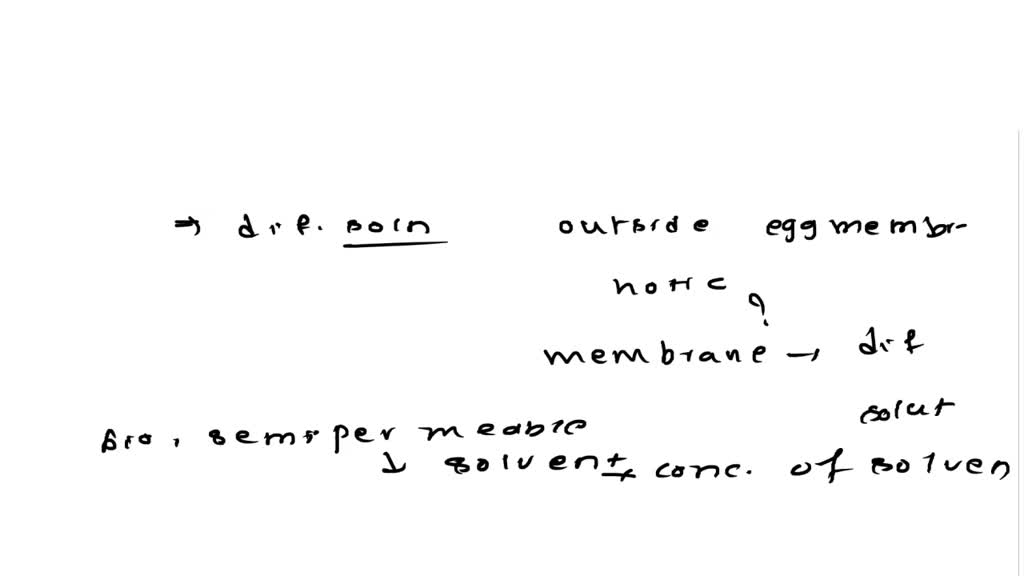 → dif. soln outside egg membr-
notic ?
membrane → dif
solut
Bio, semipermeable
↓ solvent → conc. of solven